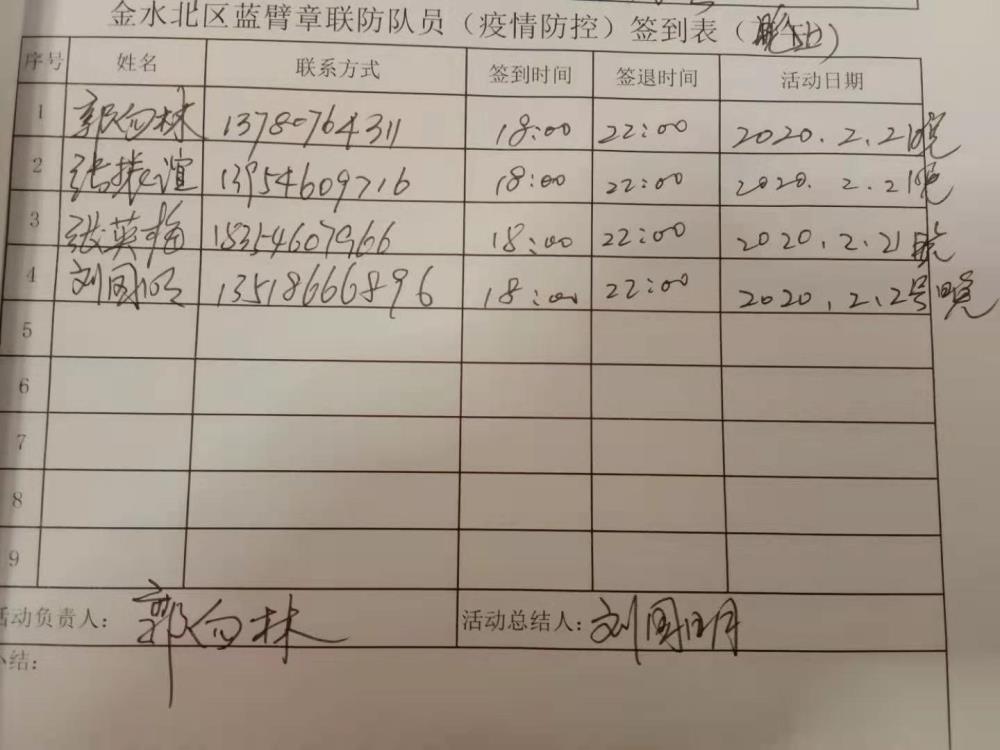 金水北区蓝臂章联防队员（疫情防控）签到表（
序号 姓名 联系方式 签到时间 签退时间 活动日期
1 郭向林 13780764311 18:00 22:00 2020.2.21晚
2 张振谊 13954609716 18:00 22:00 2020.2.21晚
3 张英梅 18354607966 18:00 22:00 2020.2.21晚
4 刘国明 13518666896 18:00 22:00 2020.2.2号晚
5
6
7
8
9
活动负责人：郭向林 活动总结人：刘国明
小结：